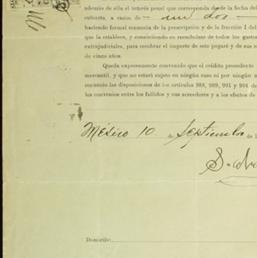 además de ella el interés penal que corresponda desde la fecha del
cubierta, a razón de — un dos —
haciendo formal renuncia de la prescripción y de la fracción I del
que la establece, y consintiendo en reembolsar de todos los gastos
extrajudiciales, para cembrar el importe de este pagaré y de sus
de cinco años.
Queda expresamente convenido que el crédito procedente
mercantil, y que no estará sujeto en ningún caso ni por ningún
cación las disposiciones de los artículos 988, 989, 991 y 994 de
los convenios entre los fallidos y sus acreedores y a los efectos de
México 10 de Septiembre
Domicilio: